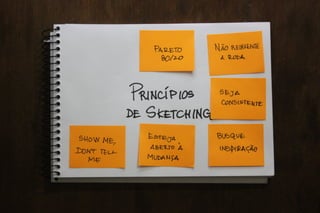 PARETO
80/20
NÃO REINVENTE
A RODA
PRINCÍPIOS
DE SKETCHING
SEJA
CONSISTENTE
SHOW ME,
DONT TELL
ME
ESTEJA
ABERTO À
MUDANÇA
BUSQUE
INSPIRAÇÃO